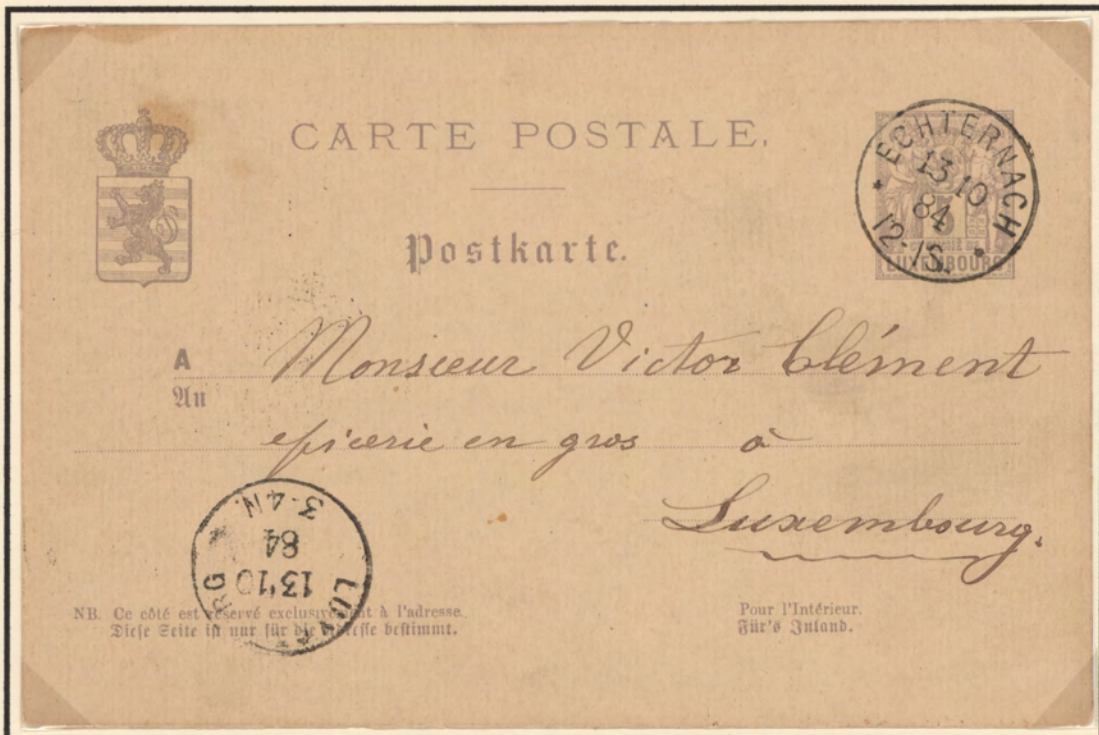 CARTE POSTALE.
Postkarte.
ECHTERNACH
13 10
84
12-1S.
5
LUXEMBOURG
A Monsieur Victor Clément
An
epicerie en gros à
Luxembourg.
3-4N.
84
13 10
NB. Ce côté est réservé exclusivement à l'adresse.
Diese Seite ist nur für die Adresse bestimmt.
Pour l'Intérieur.
Für's Inland.